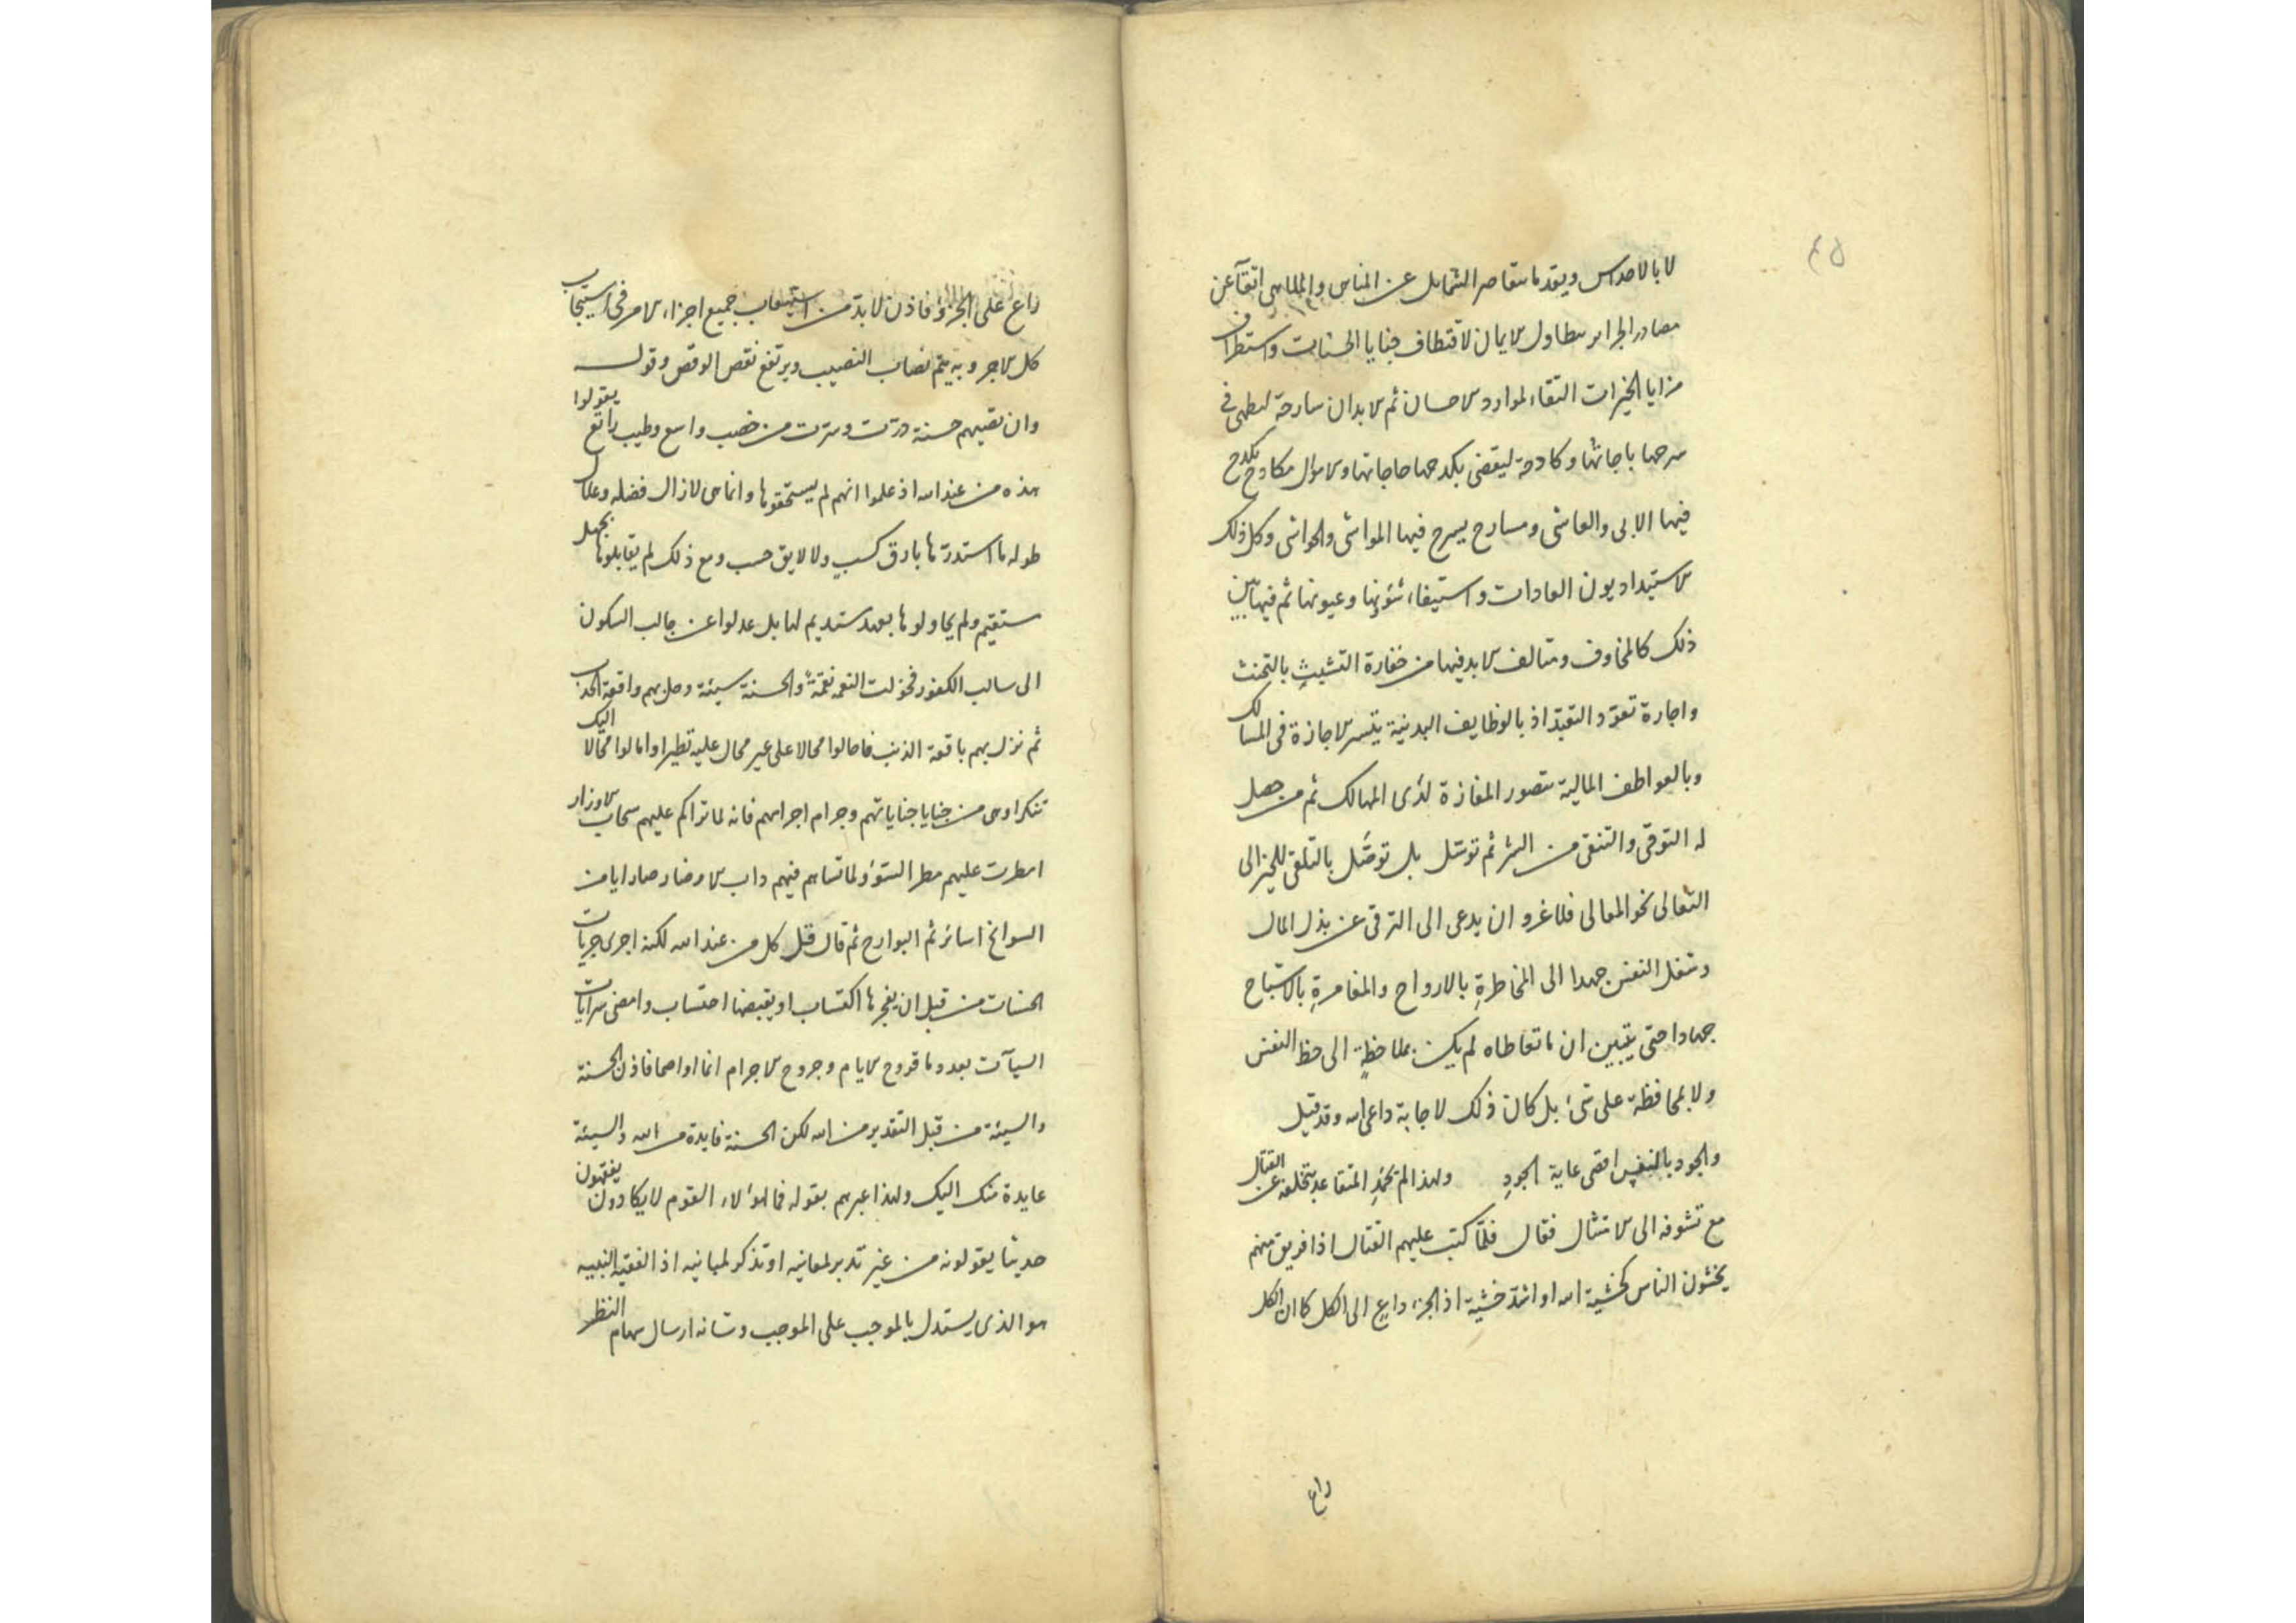 ٤٥
لا بالاحداس ويقدما متقاصر الشمايل عن المناس والملامى اتقآ عن
مصادر الجراير متطاول الايمان لاقتطاف جنايا الحسنات واستطراف
مزايا الخيرات التقاء لموارد الاحسان ثم الابدان سارحة لتطهى فى
سرحها باجاتها وكادحة ليقضى بكدحها حاجاتها والاموال مكادح يكدح
فيها الابى والعاشى ومسارح يسرح فيها المواشى والحواشى وكل ذلك
لاستيداد يون العادات واستيفاء شؤنها وعيونها ثم فيها بين
ذلك كالمخاوف ومتالف لابد فيها من خفارة التشبث بالتحنث
واجارة تعوّد التعبّد اذ بالوظايف البدنية يتيسر الاجازة فى المسالك
وبالعواطف المالية يتصور المفازة لدى المهالك ثم من حصل
له التوقى والتنقى من الشر ثم توسّل بل توصّل بالتلقى للخير الى
التعالى نحو المعالى فلا غرو ان يدعى الى الترقى عن بذل المال
وشغل النفس جهدا الى المخاطرةِ بالارواح والمغامرةِ بالاشباح
جهادا حتى يتبين ان ما تعاطاه لم يكن بملاحظةٍ الى حظ النفس
ولا بمحافظة على شىء بل كان ذلك لاجابة داعى الله وقد قيل
والجود بالنفس اقصى غاية الجودِ ولهذا لم يحمَدِ المتقاعد بتخلفه عن القتال
مع تشوفه الى الامتثال فقال فلمّا كتب عليهم القتال اذا فريق منهم
يخشون الناس كخشية الله او اشدّ خشية اذ الجزء داعٍ الى الكل كما ان الكل
داع
داع على الجزؤ فاذن لا بدّ من استيعاب جميع اجزاء الامر فى استيجاب
كل الاجر وبه يتم نصاب النصيب ويرتفع نقص الوقص وقوله
وان تصبهم حسنة درّت وسرّت من خصب واسع وطيب راتع يقولوا
هذه من عند الله اذ علموا انهم لم يستحقوها وانما هى لازال فضله وعلال
طوله ما استدرّتها بارق كسبٍ ولا لايق حسب ومع ذلك لم يقابلوها بجهل
مستقيم ولم يحاولوها بعهد مستديم لها بل عدلوا عن جالب السكون
الى سالب الكفور فحوّلت النعمة نقمةً والحسنة سيئة وحل بهم واقعة الجدب
ثم نزل بهم باقعة الذنب فاحالوا محالا على غير محال عليه تطيرا وامالوا محالا اليك
تنكرا وهى من جنايا جناياتهم وجرام اجرامهم فانه لما تراكم عليهم سحاب الاوزار
امطرت عليهم مطر السّوْء ولما تساهم فيهم داب الاوضار صارا يا من
السوانح اسائرثم البوارح ثم قال قل كل من عند الله لكنه اجرى جريات
الحسنات من قبل ان يفجرها اكتساب او يقبضها احتساب وامضى سرايات
السيآت بعد وما قروح الايام وجروح الاجرام انما اواصحا فاذن الحسنة
والسيئة من قبل التقدير من الله لكن الحسنة فايدة من الله والسيئة
عايدة منك اليك ولهذا عيرهم بقوله فما لهؤلاء القوم لا يكادون يفقهون
حديثا يقولونه من غير تدبر لمعانيه او تذكر لمبانيه اذ الفقيه النبيه
هو الذى يستدل بالموجب على الموجب وشانه ارسال سهام النظر